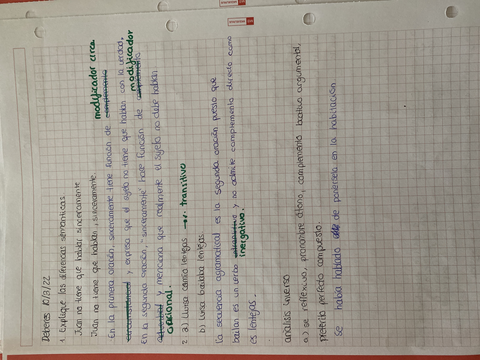 Deberes 10/3/22
1. Explique las diferencias semánticas
Juan no tiene que hablar sinceramente
Juan no tiene que hablar, sinceramente.
modificador circa
En la primera oración, sinceramente tiene función de complemento
circunstancial y expresa que el sujeto no tiene que hablar con la verdad,
modificador
en la segunda oración, "sinceramente" hace función de complemento
y menciona que realmente el sujeto no debe hablar.
oracional.
2. a) Luisa comía lentejas → transitivo
b) Luisa bailaba lentejas
La secuencia agramatical es la segunda oración puesto que
bailar es un verbo intransitivo y no admite complemento directo como
inergativo.
es lentejas.
análisis inverso
a.2 se reflexivo, pronombre átono, complemento locativo argumental,
pretérito perfecto compuesto.
se había hablado de ponérsela en la habitación